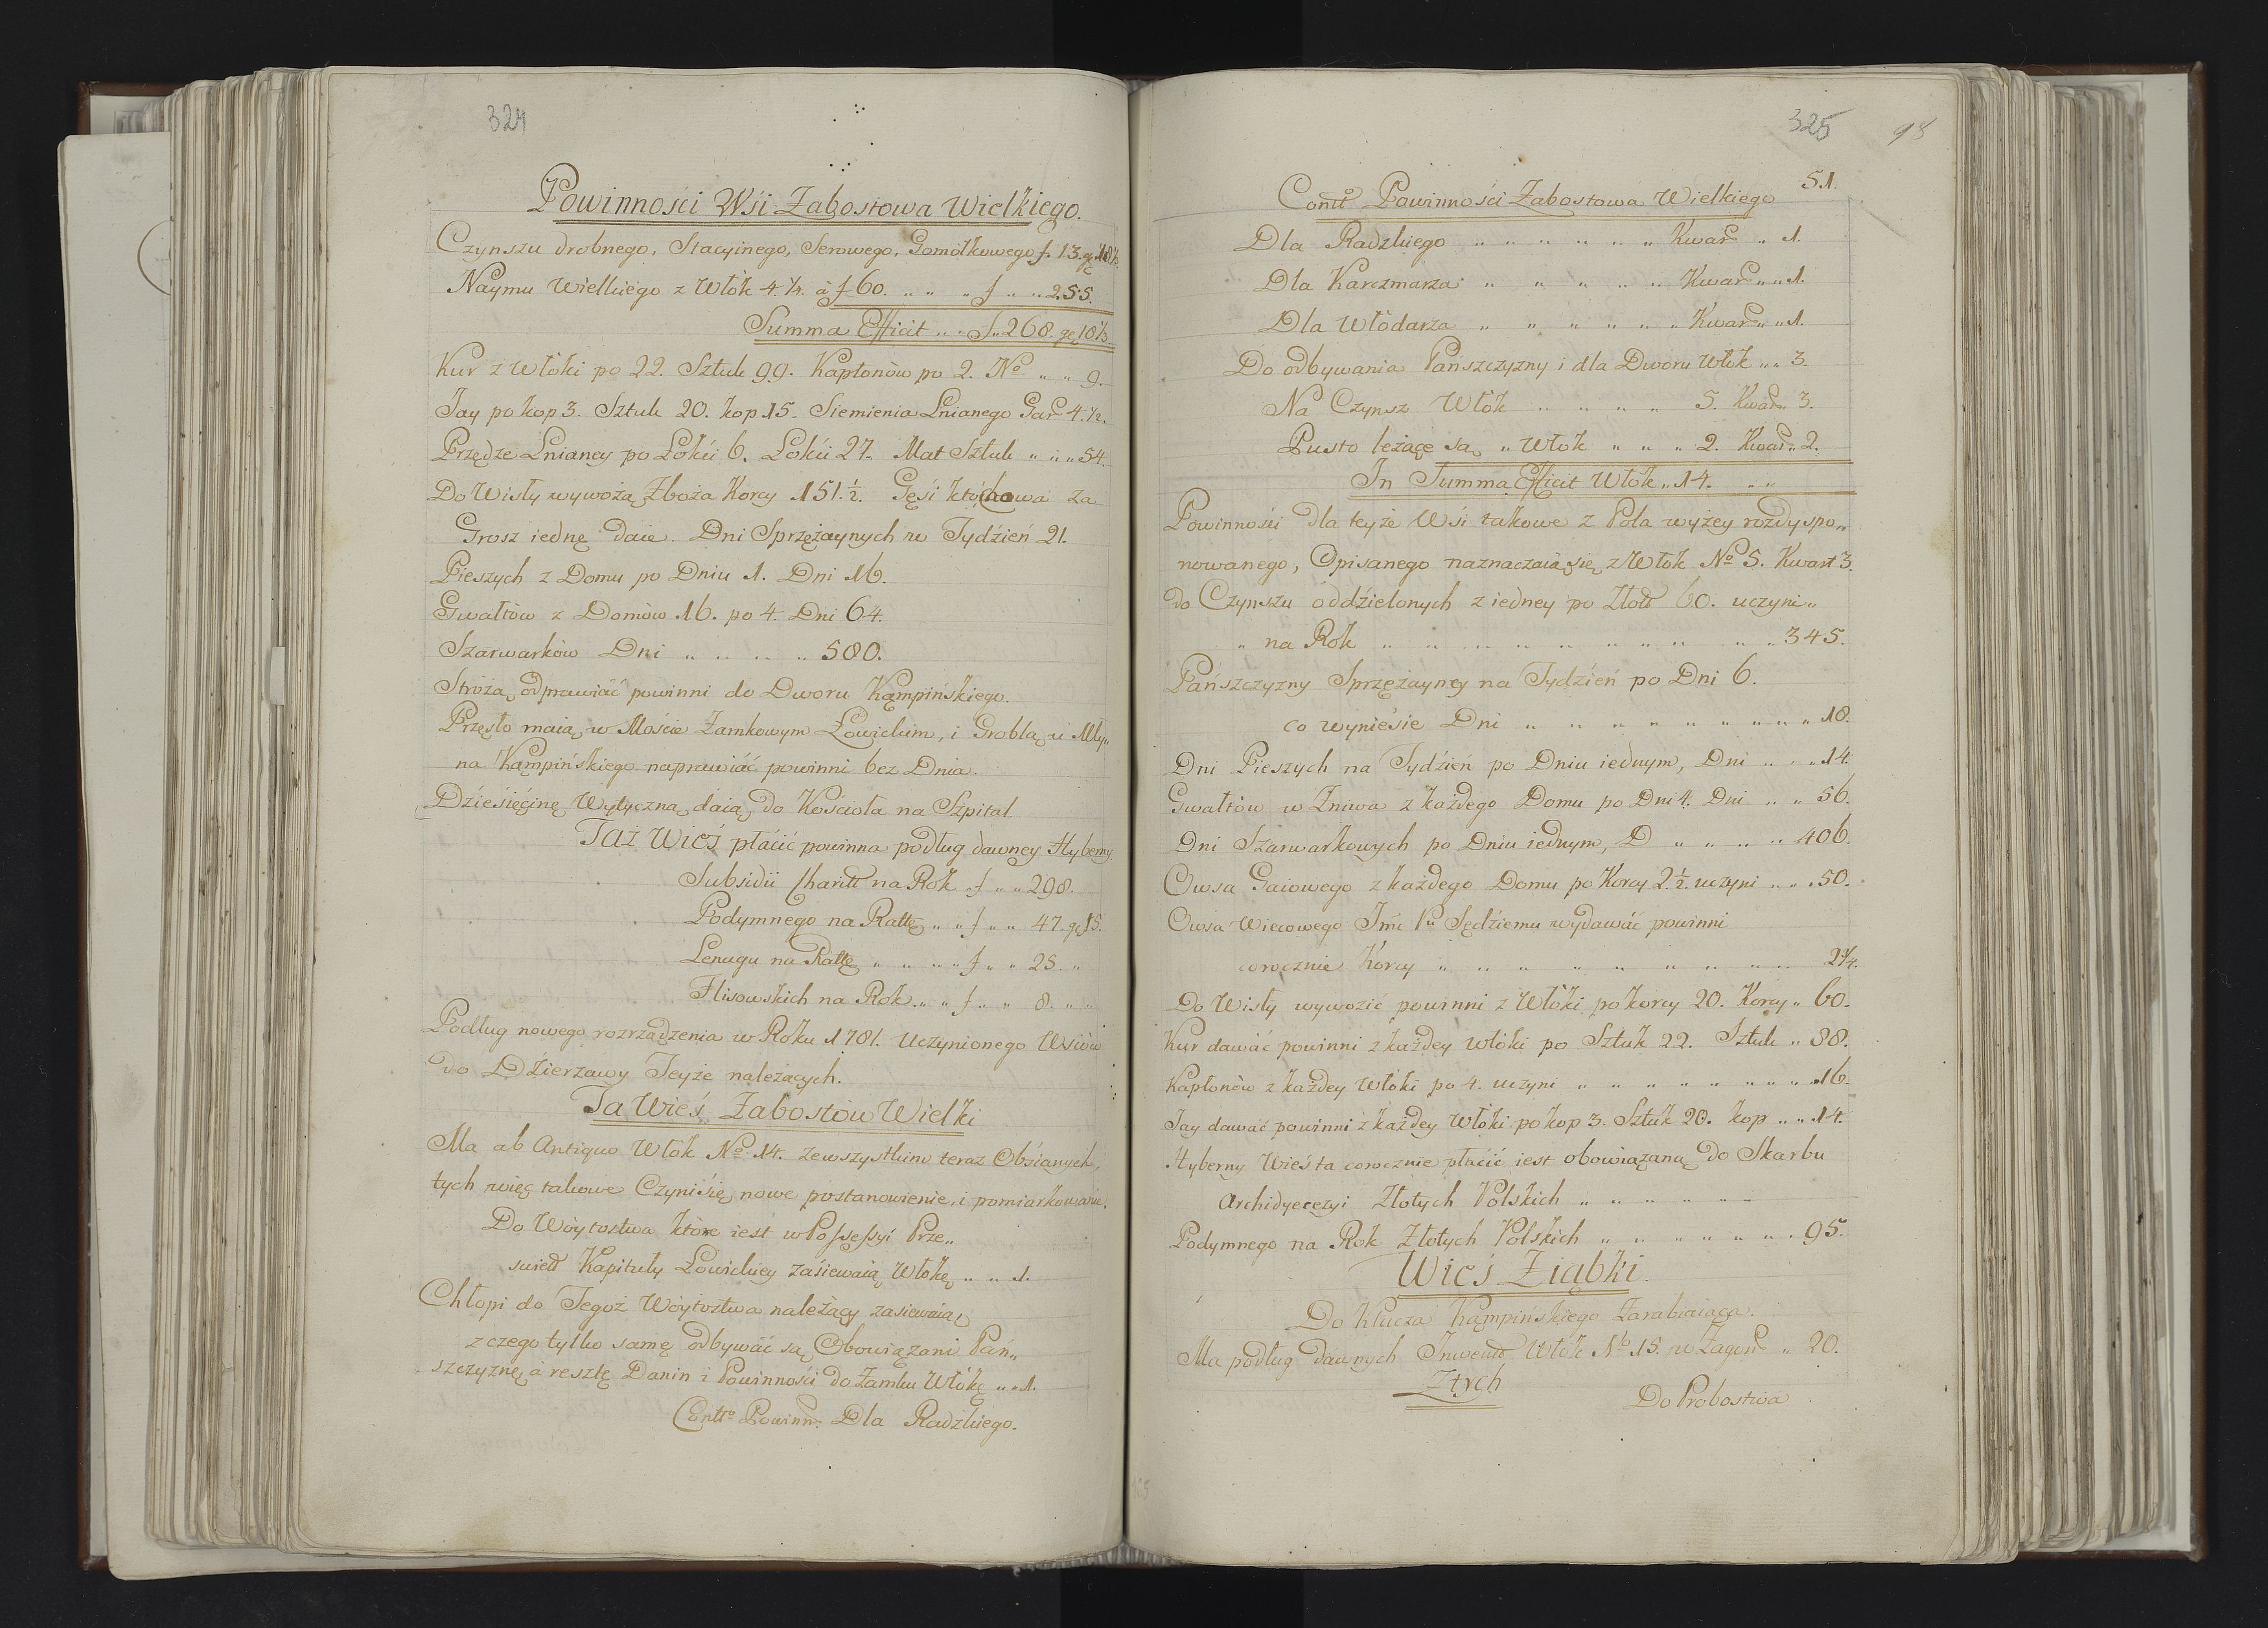 324
Powinności Wsi Zabostowa Wielkiego.
Czynszu drobnego, Stacyinego, Serowego, Gomołkowego f. 13. gr 10⅓.
Naymu Wielkiego z Włok 4.¼. à f 60. „ „ „ f „ „ 255.
Summa Efficit „ „ f „ 268. gr 10⅓.
Kur z Włoki po 22. Sztuk 99. Kapłonow po 2. No „ „ 9.
Jay po kop 3. Sztuk 20. kop 15. Siemienia Lnianego Gar 4.½.
Przędze Lnianey po Łokci 6. Łokci 27. Mat Sztuk „ „ „ 54.
Do Wisły wywożą Zboża Korcy 151.½. Gęsi kto chowa za
Grosz iednę daie. Dni Sprzężaynych w Tydzień 21.
Pieszych z Domu po Dniu 1. Dni 16.
Gwałtow z Domow 16. po 4. Dni 64.
Szarwarkow Dni „ „ „ „ 580.
Stróżą odprawiać powinni do Dworu Kąmpińskiego.
Przęsło maią w Moście Zamkowym Łowickim, i Groblą u Mły„
na Kąmpińskiego naprawiać powinni bez Dnia.
Dziesięcinę Wytyczną daią do Kościoła na Szpital.
Taż Wieś płacić powinna podług dawney Hyberny
Subsidii Charitt na Rok f „ „ 298.
Podymnego na Rattę „ „ f „ „ 47. gr 15.
Lenugu na Rattę „ „ „ „ f „ „ 25. „
Flisowskich na Rok „ „ f „ „ 8. „ „
Podług nowego rozrządzenia w Roku 1781. Uczynionego Wsiow
do Dzierzawy Teyże należących.
Ta Wieś Zabostow Wielki
Ma ab Antiquo Włok No 14. ze wszystkim teraz Obsianych,
tych więc takowe Czyni się nowe postanowienie, i pomiarkowanie.
Do Woytostwa które iest w Possessyi Prze„
swiett Kapituły Łowickiey zasiewaią Włokę „ „ 1.
Chłopi do Tegoż Woytostwa należący zasiewaią
z czego tylko samę odbywać są Obowiązani Pań„
szczyznę, a resztę Danin i Powinności do Zamku Włokę „ „ 1.
Contto Powinn: Dla Radzkiego.
325 98
51.
Contt Powinności Zabostowa Wielkiego
Dla Radzkiego „ „ „ „ „ „ Kwar „ 1.
Dla Karczmarza „ „ „ „ „ Kwar „ „ 1.
Dla Włodarza „ „ „ „ „ „ Kwar „ „ 1.
Do odbywania Pańszczyzny i dla Dworu Włok „ „ 3.
Na Czynsz Włok „ „ „ „ 5. Kwar 3.
Pusto leżące są „ Włok „ „ „ 2. Kwar „ 2.
In Summa Efficit Włok „ 14. „ „
Powinności dla teyże Wsi takowe z Pola wyżey rozdyspo„
nowanego, Opisanego naznaczaią się z Włok No 5. Kwart 3.
do Czynszu oddzielonych z iedney po Złott 60. uczyni „
„ na Rok „ „ „ „ „ „ „ „ „ „ „ 345.
Pańszczyzny Sprzężayney na Tydzień po Dni 6.
co wyniesie Dni „ „ „ „ „ „ „ „ „ 18.
Dni Pieszych na Tydzień po Dniu iednym, Dni „ „ „ 14.
Gwałtow w Żniwa z każdego Domu po Dni 4. Dni „ „ 56.
Dni Szarwarkowych po Dniu iednym, D „ „ „ „ 406.
Owsa Gaiowego z każdego Domu po Korcy 2.½. uczyni „ „ „ 50.
Owsa Wiecowego Jmć Pu Sędziemu wydawać powinni
corocznie Korcy „ „ „ „ „ „ „ „ „ 2¼.
Do Wisły wywozić powinni z Włoki po korcy 20. Korcy „ 60.
Kur dawać powinni z każdey Włoki po Sztuk 22. Sztuk „ 88.
Kapłonow z każdey Włoki po 4. uczyni „ „ „ „ „ „ „ „ 16.
Jay dawać powinni z każdey Włoki po kop 3. Sztuk 20. kop „ „ 14.
Hyberny Wieś ta corocznie płacić iest obowiązaną do Skarbu
Archidyecezyi Złotych Polskich „ „ „ „ „ „
Podymnego na Rok Złotych Polskich „ „ „ „ „ „ „ 95.
Wieś Ziąbki.
Do Klucza Kąmpińskiego Zarabiaiąca.
Ma podług dawnych Inwentt Włok No 15. w Zagon „ 20.
Z tych
Do Probostwa